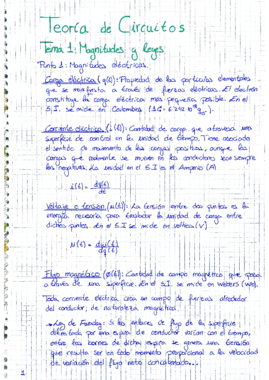 Teoría de Circuitos
Tema 1: Magnitudes y leyes.
Punto 1: Magnitudes eléctricas.
Carga eléctrica (q(t)): Propiedad de las partículas elementales
que se manifiesta a través de fuerzas eléctricas. El electrón
constituye la carga eléctrica más pequeña posible. En el
S.I. se mide en Coulombios (1C =
Corriente eléctrica (i(t)): Cantidad de carga que atraviesa una
superficie de control en la unidad de tiempo. Tiene asociada
el sentido de movimiento de las cargas positivas, aunque las
cargas que realmente se mueven en los conductores sean siempre
las negativas. La unidad en el S.I es el Amperio (A)
i(t) = dq(t)/dt
Voltaje o tensión (u(t)): La tensión entre dos puntos es la
energía necesaria para trasladar la unidad de carga entre
dichos puntos. En el S.I se mide en voltios (V)
Flujo magnético (φ(t)): Cantidad de campo magnético que pasa
a través de una superficie. En el S.I. se mide en Webers (Wb).
Toda corriente eléctrica crea un campo de fuerzas alrededor
del conductor, de naturaleza magnética.
Ley de Faraday: Si los enlaces de flujo de la superficie
delimitada por una espira de conductor varían con el tiempo,
entre los bornes de dicha espira se genera una tensión
que resulta ser en todo momento proporcional a la velocidad
de variación del flujo neto concatenado...
1